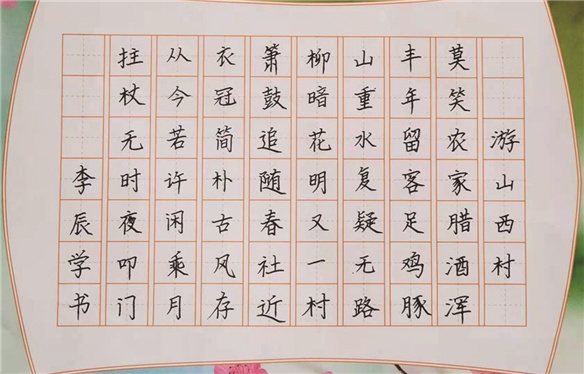 游山西村
莫笑农家腊酒浑
丰年留客足鸡豚
山重水复疑无路
柳暗花明又一村
箫鼓追随春社近
衣冠简朴古风存
从今若许闲乘月
拄杖无时夜叩门
李辰学书